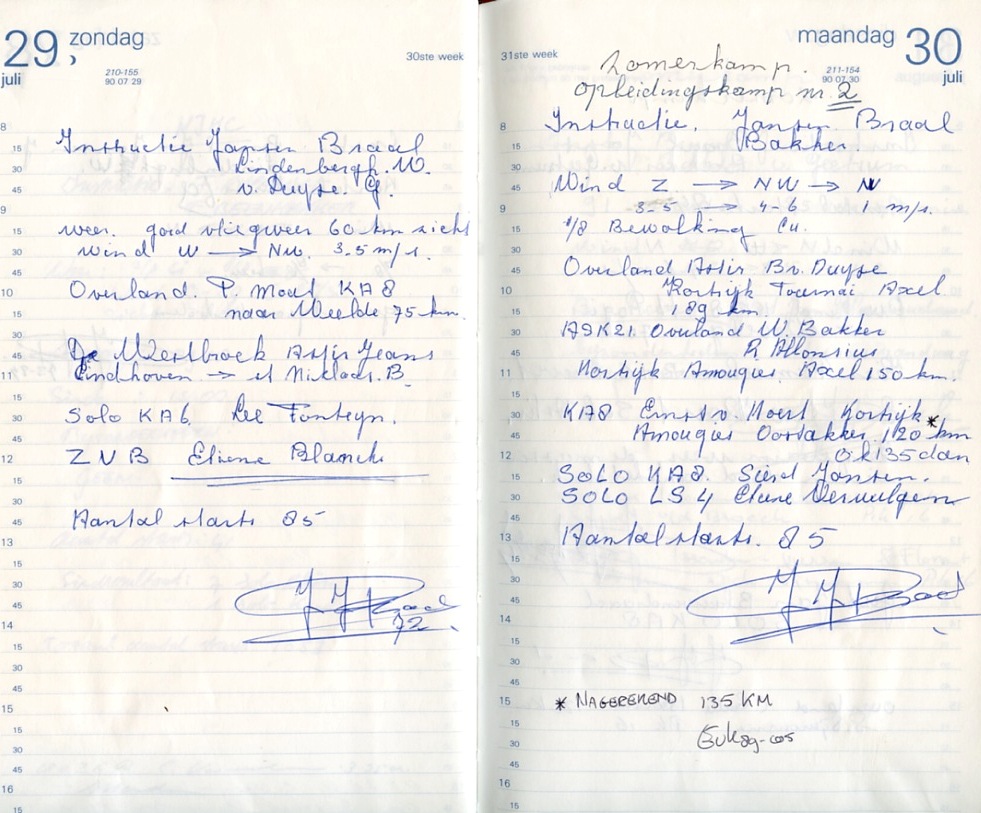 29 zondag
juli
210-155
90 07 29
30ste week
8
15
30
45
9
15
30
45
10
15
30
45
11
15
30
45
12
15
30
45
13
15
30
45
14
15
30
45
15
15
30
45
16
15
Instructie Jansen Braal
Lindenbergh. W.
v. Duyse. G.
weer. goed vliegweer 60 km zicht
wind W → NW. 3.5 m/s.
Overland. P. Moet KA8
naar Weelde 75 km.
De Westbroek Astir Jeans
Eindhoven → st Niklaas. B.
Solo KA6. Lee Fonteyn.
ZVB Etiene
Aantal starts 85
72
31ste week
maandag 30
juli
211-154
90 07 30
Zomerkamp.
opleidingskamp nr. 2
8
15
30
45
9
15
30
45
10
15
30
45
11
15
30
45
12
15
30
45
13
15
30
45
14
15
30
45
15
15
30
45
16
15
Instructie. Jansen Braal
Bakker.
Wind Z → NW → N
3-5 → 4-6 1 m/s.
1/8 Bewolking Cu.
Overland Astir B v. Duyse
Kortrijk Tournai Axel
189 km
ASK21. Overland W. Bakker
R Alfonsius
Kortrijk Amougies. Axel 150 km.
KA8 Ernst v. Kortrijk *
Amougies Oostakker. 120 km
ok 135 dan
SOLO KA8. Sierd Jansen.
SOLO LS4
Aantal starts. 85
* NAGEREKEND 135 KM